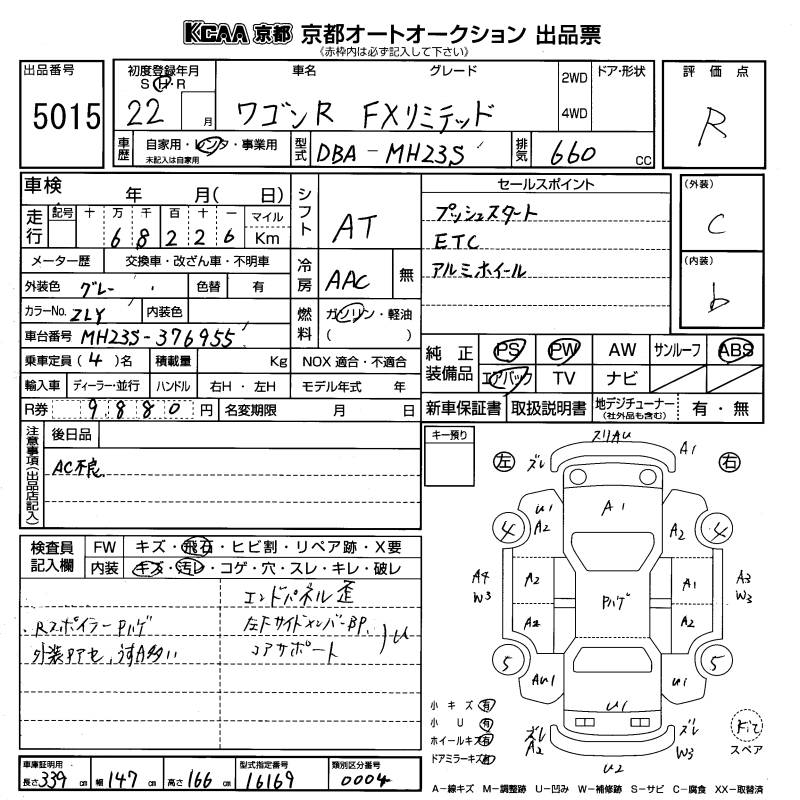 KCAA 京都 京都オートオークション 出品票
《赤枠内は必ず記入して下さい》
出品番号
5015
初度登録年月
S H・R
22 月
車名 グレード
ワゴンR FXリミテッド
2WD
4WD
ドア・形状
評価点
R
車歴 自家用・レンタ・事業用
未記入は自家用
型式 DBA-MH23S
排気 660 CC
車検 年 月( 日)
走行 記号 十 万 千 百 十 一 マイル
6 8 2 2 6 Km
メーター歴 交換車・改ざん車・不明車
外装色 グレー 色替 有
カラーNo. ZLY 内装色
車台番号 MH23S-376955
乗車定員(4)名 積載量 Kg
輸入車 ディーラー・並行 ハンドル 右H・左H
R券 9880 円 名変期限 月 日
シフト AT
冷房 AAC 無
燃料 ガソリン・軽油
( )
NOX 適合・不適合
モデル年式 年
セールスポイント
プッシュスタート
ETC
アルミホイール
(外装)
C
(内装)
b
純正装備品 PS PW AW サンルーフ ABS
エアバック TV ナビ
新車保証書 取扱説明書 地デジチューナー
(社外品も含む) 有・無
注意事項(出品店記入)
後日品
AC不良
検査員記入欄 FW キズ・飛石・ヒビ割・リペア跡・X要
内装 キズ・汚レ・コゲ・穴・スレ・キレ・破レ
Rスポイラー Pハゲ
外装アセ、うすA多い
エンドパネル歪
左Fサイドメンバー BP
コアサポート
U
車庫証明用
長さ 339 cm 幅 147 cm 高さ 166 cm
型式指定番号
16169
類別区分番号
0004
キー預り
左
右
ズレ
スリAU
A1
U1
A2
A1
A2
4
4
A4
W3
A2
A1
A3
W3
Pハゲ
A2
A2
5
5
AU1
U1
U1
ズレ
A2
ズレ
W3
U2
小キズ 有
小U 有
ホイールキズ 有
ドアミラーキズ 有
スペア
A-線キズ M-調整跡 U-凹み W-補修跡 S-サビ C-腐食 XX-取替済